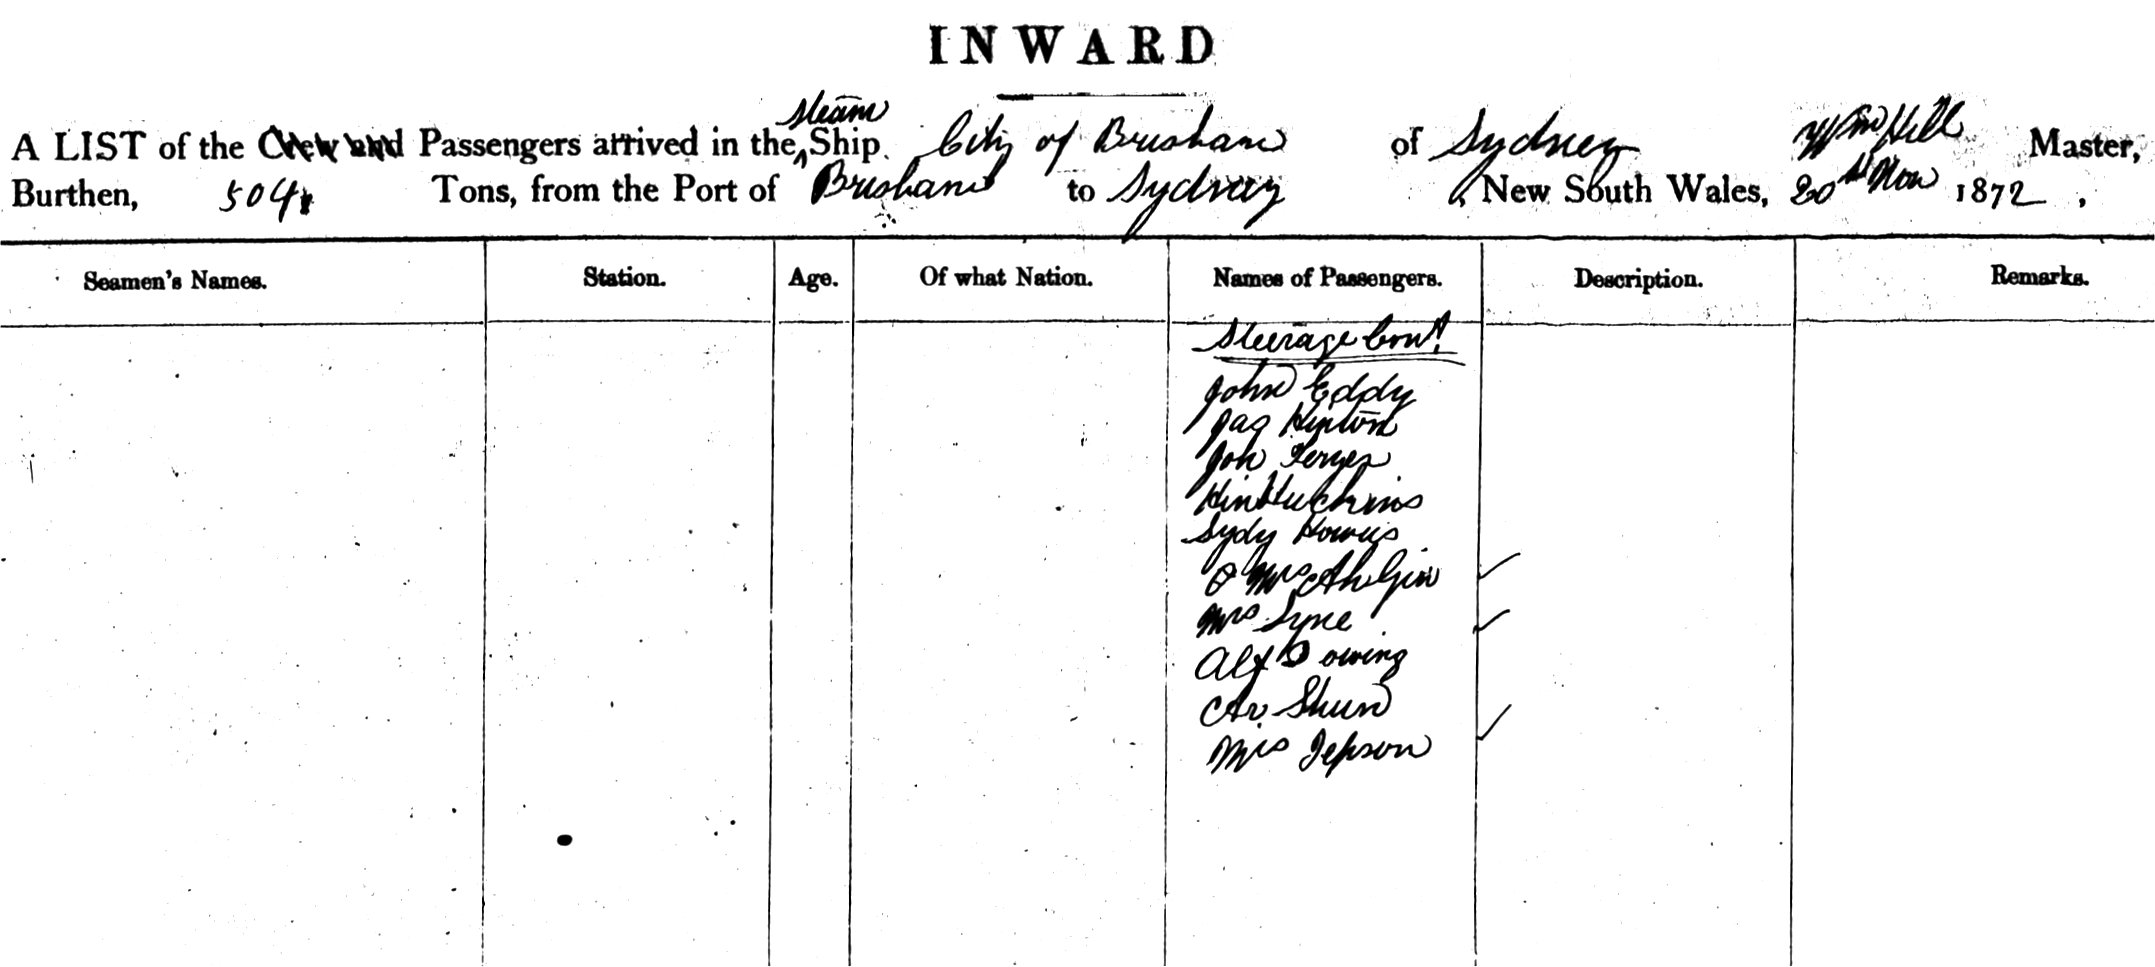 INWARD
A LIST of the Crew and Passengers arrived in the steam Ship City of Brisbane of Sydney Wm Hill Master,
Burthen, 504 Tons, from the Port of Brisbane to Sydney New South Wales, 20th Nov 1872,
Seamen's Names. Station. Age. Of what Nation. Names of Passengers. Description. Remarks.
Steerage Cont
John Eddy
Jas Hinton
Jon
Hin Hutchins
Sydy
Mrs Ah Gin
Mrs Syne
Alf Dowing
Ar Shun
Mrs Jepson